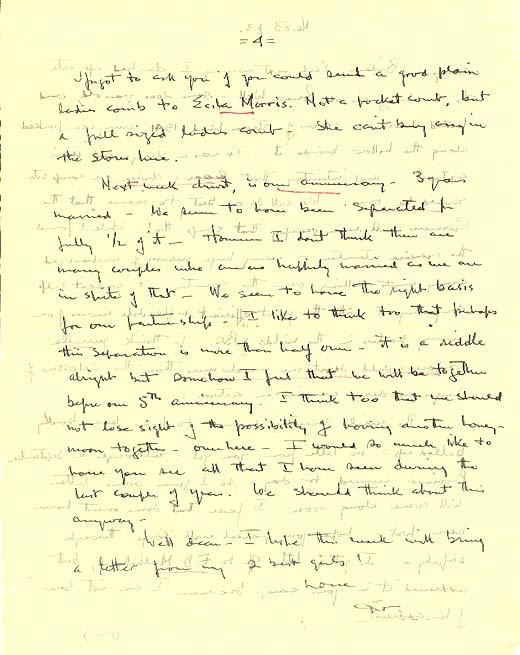 =4=
I forgot to ask you if you could send a good plain
ladies comb to Ecila Morris. Not a pocket comb, but
a full sized ladies comb - She can't buy any in
the stores here.
Next week, is our anniversary - 3 years
married - We seem to have been separated for
fully 1/2 of it - However I don't think there are
many couples who are as happily married as we are
in spite of that - We seem to have the right basis
for our partnership - I like to think too that perhaps
this separation is more than half over - it is a riddle
alright but somehow I feel that we will be together
before our 5th anniversary - I think too that we should
not lose sight of the possibility of having another honey-
moon together - over here - I would so much like to
have you see all that I have seen during the
last couple of years. We should think about this
anyway -
Well dear - I hope this week will bring
a letter from my 2 best girls!
Love